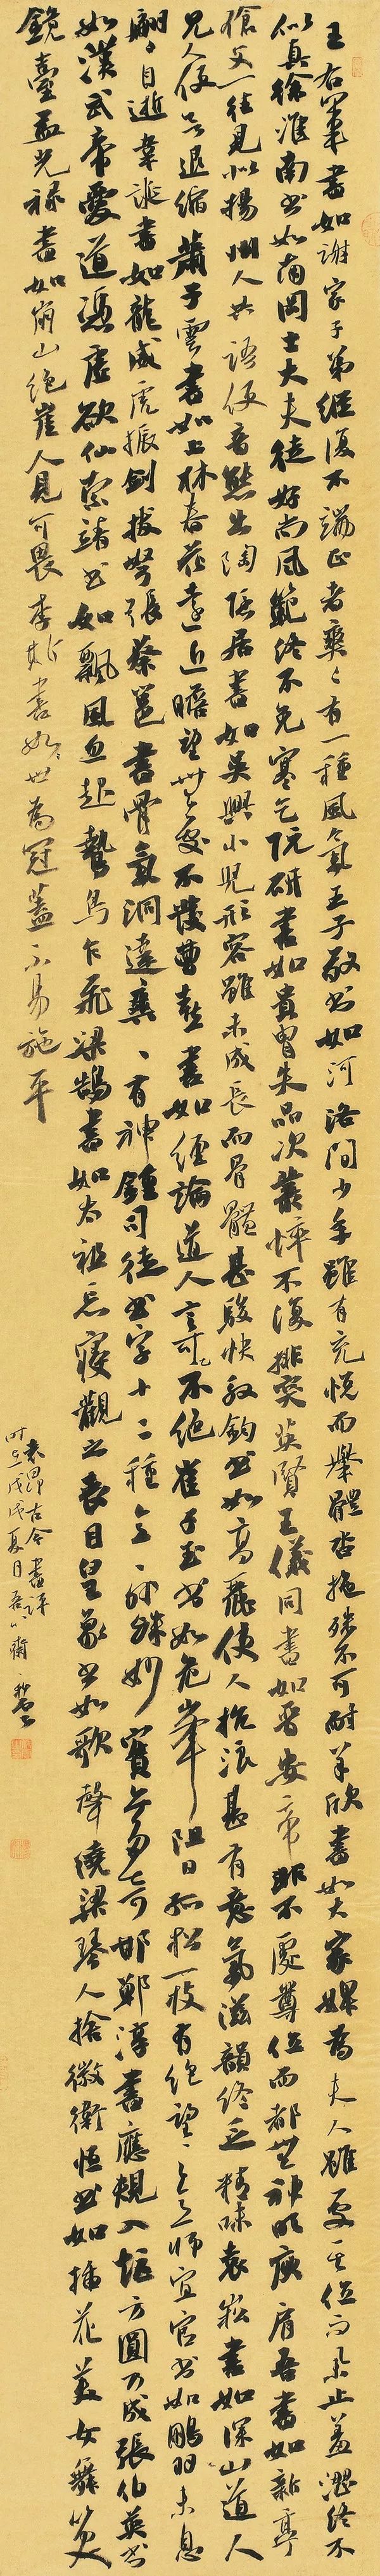 王右军书如谢家子弟纵复不端正者爽々有一种风气王子敬书如河洛间少年虽有充悦而举体沓拖殊不可耐羊欣书如大家婢为夫人虽处其位而举止羞涩终不
似真徐淮南书如南冈士大夫徒好尚风范终不免寒乞阮研书如贵胄失品次丛悴不复排突英贤王仪同书如晋安帝非不处尊位而都无神明庾肩吾书如新亭
伧父一往见似扬州人共语便音态出陶隐居书如吴兴小儿形容虽未成长而骨体甚骏快殷钧书如高丽使人抗浪甚有意气滋韵终乏精味袁崧书如深山道人
见人便欲退缩萧子云书如上林春花远近瞻望无处不发曹喜书如经论道人言不可绝崔子玉书如危峰阻日孤松一枝有绝望之意师宜官书如鹏羽未息
翩々自逝韦诞书如龙威虎振剑拔弩张蔡邕书骨气洞达爽々有神钟司徒书字十二种意意外殊妙实亦多奇邯郸淳书应规入矩方圆乃成张伯英书
如汉武帝爱道凭虚欲仙索靖书如飘风忽起鸷鸟乍飞梁鹄书如太祖忘寝观之丧目皇象书如歌声绕梁琴人舍徽卫恒书如插花美女舞笑
镜台孟光禄书如崩山绝崖人见可畏李斯书如世为冠盖不易施平
袁昂古今书评
时在戊戌夏月